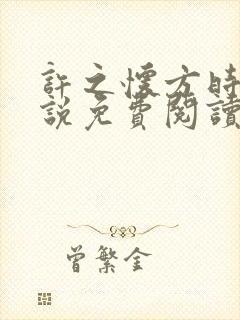 許之懷方時
說免費閱讀
曾繁全